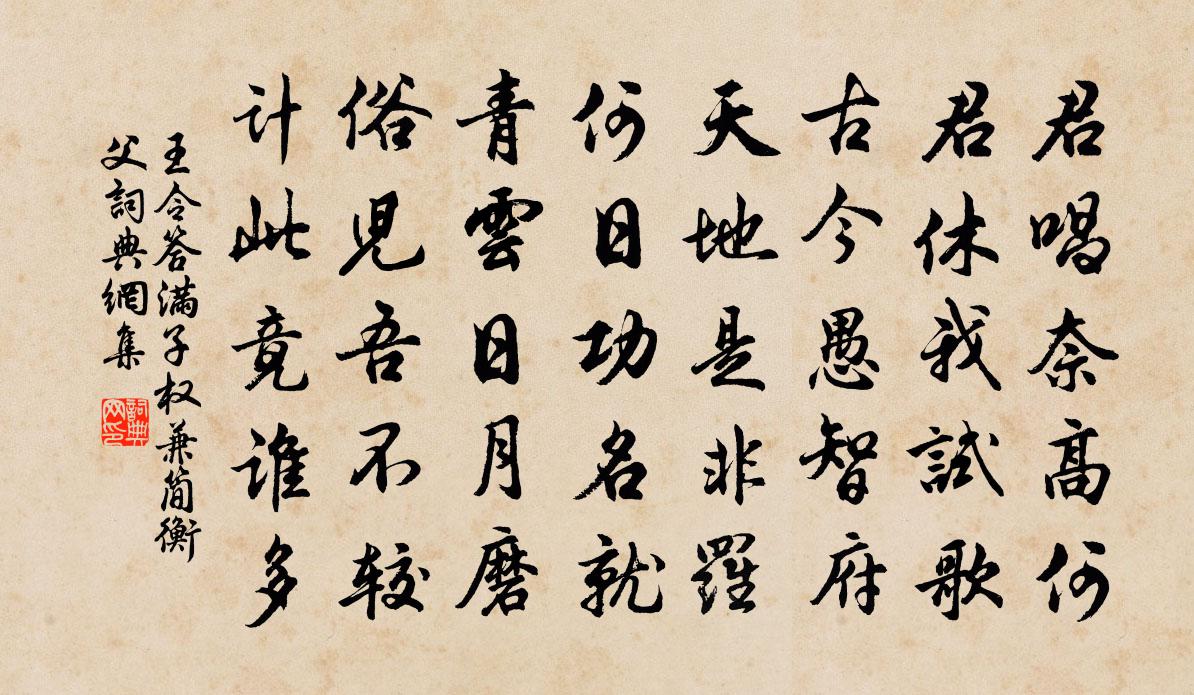 君唱奈高何
君休我試歌
古今愚智府
天地是非羅
何日功名就
青雲日月磨
俗児吾不較
计此竟谁多
王令答满子权兼简衡
父詞典網集
詞典
网印